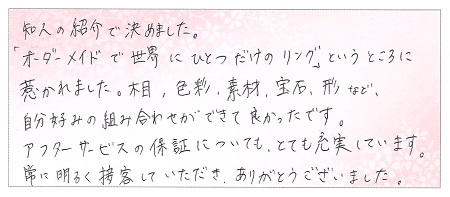 知人の紹介で決めました。
「オーダーメイドで世界にひとつだけのリング」というところに
惹かれました。木目，色彩，素材，宝石、形など、
自分好みの組み合わせができて良かったです。
アフターサービスの保証についても、とても充実しています。
常に明るく接客していただき、ありがとうございました。